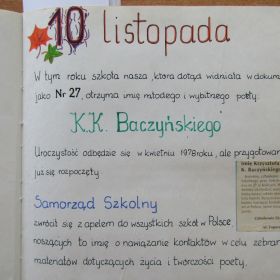 10 listopada
W tym roku szkoła nasza, która dotąd widniała w dokum
jako Nr 27, otrzyma imię młodego i wybitnego poety.
K.K. Baczyńskiego
Uroczystość odbędzie się w kwietniu 1978 roku, ale przygotowan
już się rozpoczęły.
Samorząd Szkolny
zwrócił się z apelem do wszystkich szkół w Polsce
noszących to imię o nawiązanie kontaktów w celu zebran
materiałów dotyczących życia i twórczości poety.
imię Krzysztofa
K. Baczyńskiego